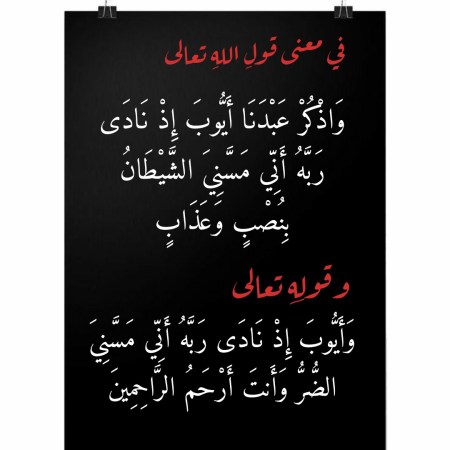 في معنى قولِ اللهِ تعالى
وَاذْكُرْ عَبْدَنَا أَيُّوبَ إِذْ نَادَى
رَبَّهُ أَنِّي مَسَّنِيَ الشَّيْطَانُ
بِنُصْبٍ وَعَذَابٍ
و قولِهِ تعالى
وَأَيُّوبَ إِذْ نَادَى رَبَّهُ أَنِّي مَسَّنِيَ
الضُّرُّ وَأَنتَ أَرْحَمُ الرَّاحِمِينَ